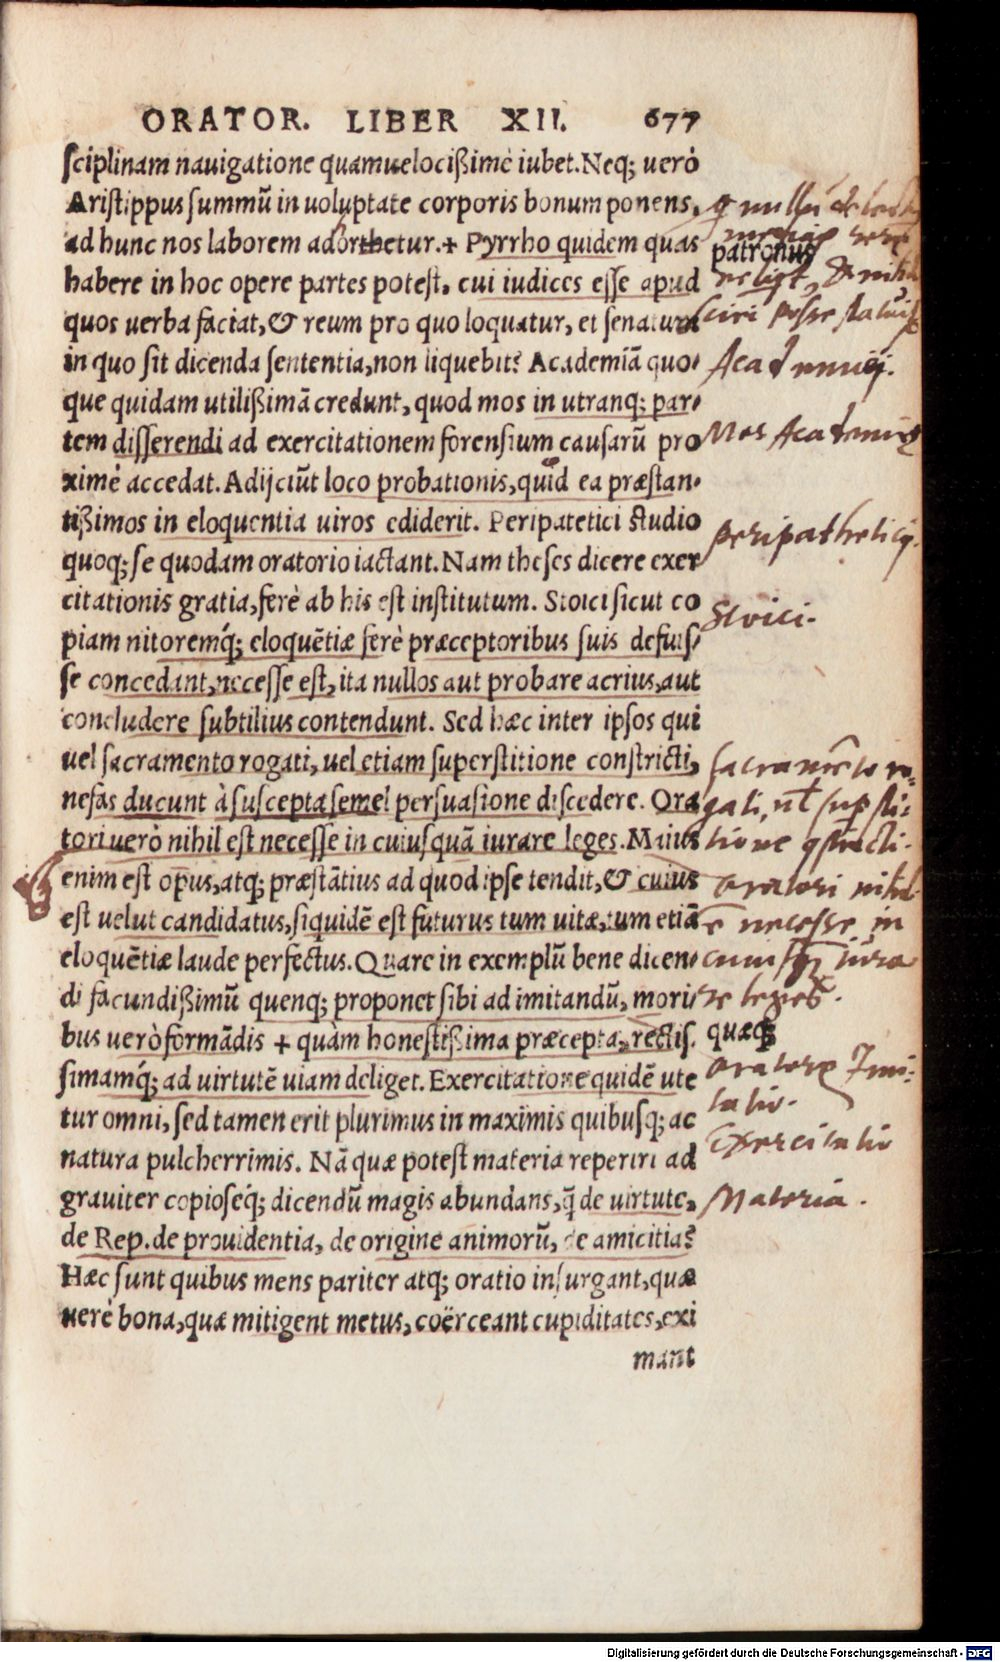 ORATOR. LIBER XII. 677
sciplinam nauigatione quamuelocißimè iubet. Neq; verò
Aristippus summũ in uoluptate corporis bonum ponens,
ad hunc nos laborem adorthetur.+ Pyrrho quidem quas
patronus
habere in hoc opere partes potest, cui iudices esse apud
quos uerba faciat, & reum pro quo loquatur, et senatum
sciri posse statuit
in quo sit dicenda sententia, non liquebit? Academiã quo-
Academici.
que quidam utilißimã credunt, quod mos in utranq; par-
tem disserendi ad exercitationem forensium causarũ pro
Mos Academicis
ximè accedat. Adijciũt loco probationis, quid ea præstan-
tißimos in eloquentia uiros ediderit. Peripatetici studio
peripathetici.
quoq; se quodam oratorio iactant. Nam theses dicere exer
citationis gratia, ferè ab his est institutum. Stoici sicut co
Stoici.
piam nitoremq́; eloquẽtiæ ferè præceptoribus suis defuis-
se concedant, necesse est, ita nullos aut probare acrius, aut
concludere subtilius contendunt. Sed hæc inter ipsos qui
uel sacramento rogati, uel etiam superstitione constricti,
sacramẽto ro-
nefas ducunt à suscepta semel persuasione discedere. Ora
gati, vel supsti-
tori uerò nihil est necesse in cuiusquã iurare leges. Maius
tione cstricti.
enim est opus, atq; præstãtius ad quod ipse tendit, & cuius
oratori nihil
est uelut candidatus, siquidẽ est futurus tum uitæ, tum etiã
ẽ necesse in
eloquẽtiæ laude perfectus. Quare in exemplũ bene dicen-
iura
di facundißimũ quenq; proponet sibi ad imitandũ, mori
re leges.
bus uerò formãdis + quàm honestißima præcepta, rectis.
quæq;
simamq́; ad uirtutẽ uiam deliget. Exercitatione quidẽ ute
oratore Imi-
tatio.
tur omni, sed tamen erit plurimus in maximis quibusq; ac
Exercitatio
natura pulcherrimis. Nã quæ potest materia reperiri ad
grauiter copioseq́; dicendũ magis abundans, q̃ de uirtute,
Materia.
de Rep. de prouidentia, de origine animorũ, de amicitia?
Hæc sunt quibus mens pariter atq; oratio insurgant, quæ
uerè bona, quæ mitigent metus, coërceant cupiditates, exi
mant
Digitalisierung gefördert durch die Deutsche Forschungsgemeinschaft - DFG